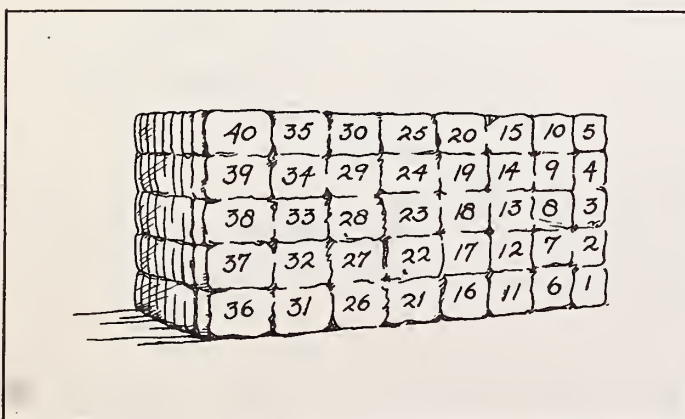 40 35 30 25 20 15 10 5
39 34 29 24 19 14 9 4
38 33 28 23 18 13 8 3
37 32 27 22 17 12 7 2
36 31 26 21 16 11 6 1